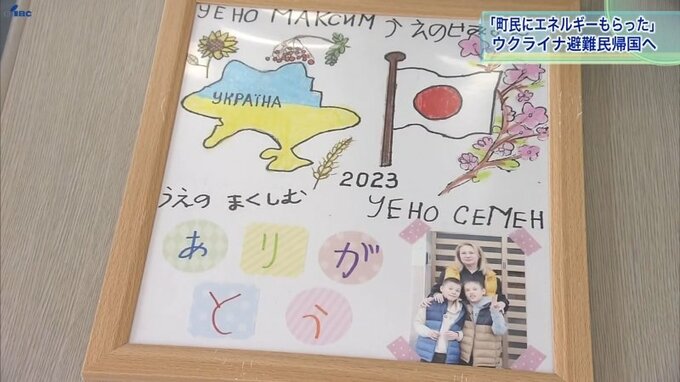 IBC
「町民にエネルギーもらった」
ウクライナ避難民帰国へ
УЕНО МАКСИМ
УКРАЇНА
2023
うえの まくしむ
УЕНО СЕМЕН
あ り が
と う